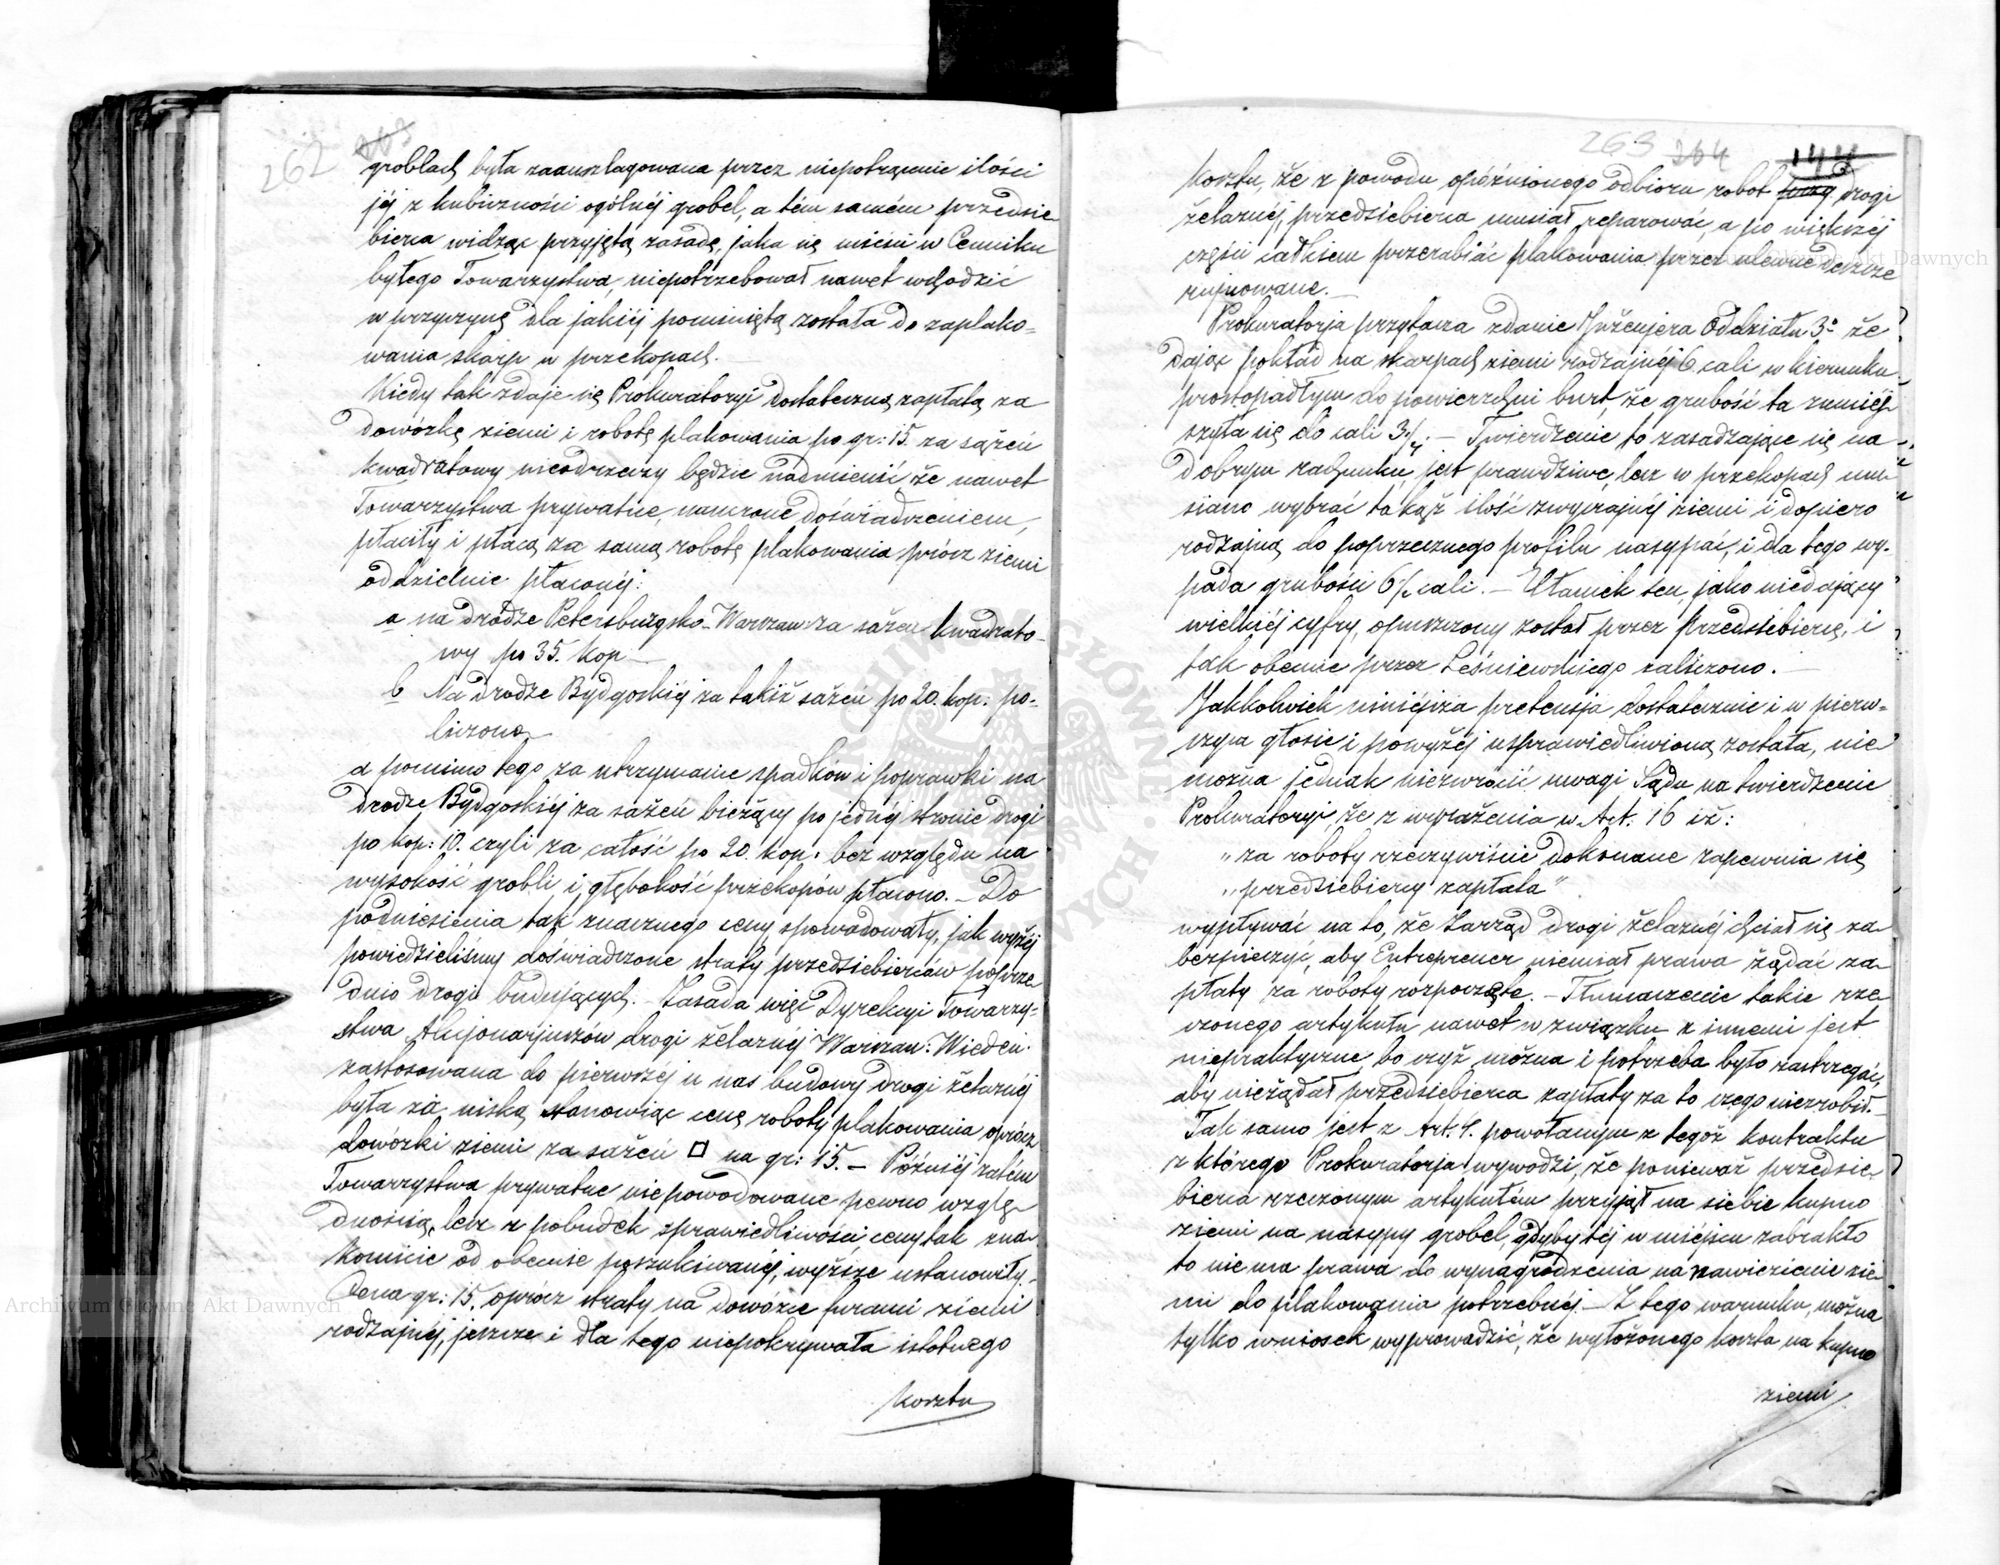 262 263
groblach była zaanszlagowana przez niepotrącenie ilości
jéj z kubiczności ogólnéj grobel, a tém samém przedsię-
bierca widząc przyjętą zasadę, jaka się mieści w Cenniku
byłego Towarzystwa, niepotrzebował nawet wchodzić
w przyczynę dla jakiéj pominiętą została do zaplako-
wania skarp w przekopach.
Kiedy tak zdaje się Prokuratoryi dostateczną zapłatą za
dowózkę ziemi i robotę plakowania po gr: 15. za sążeń
kwadratowy nieodrzeczy będzie nadmienić że nawet
Towarzystwa prywatne, nauczone doświadczeniem,
płaciły i płacą za samą robotę plakowania prócz ziemi
oddzielnie płaconéj:
a na drodze Petersburgsko-Warszaw: za sażeń kwadrato-
wy po 35. kop.
b Na drodze Bydgoskiéj za takiż sażeń po 20. kop: po-
liczono
a pomimo tego za utrzymanie spadków i poprawki na
drodze Bydgoskiéj za sażeń bieżący po jednéj stronie drogi
po kop: 10. czyli za całość po 20. kop: bez względu na
wysokość grobli i głębokość przekopów płacono. – Do
podniesienia tak znacznego ceny spowodowały, jak wyżéj
powiedzieliśmy doświadczone straty przedsiebierców poprze-
dnio drogi budujących. – Zasada więc Dyrekcyi Towarzy-
stwa Akcjonarjuszów drogi żelaznéj Warszaw: Wiedeń:
zastosowana do pierwszéj u nas budowy drogi żelaznéj
była za niską stanowiąc cenę roboty plakowania oprócz
dowózki ziemi za sażeń □ na gr: 15. – Późniéj zatem
Towarzystwa prywatne niepowodowane pewno wzglę-
dnością, lecz z pobudek sprawiedliwości, ceny tak zna-
komicie od obecnie poszukiwanéj, wyższe ustanowiły.
Cena gr: 15. oprócz straty na dowózce furami ziemi
rodzajnéj, jeszcze i dla tego niepokrywała istotnego
kosztu
263 264 144
Kosztu, że z powodu opóźnionego odbioru robót drogi
żelaznéj, przedsiebierca musiał reparować, a po większéj
części całkiem przerabiać plakowania przez ulewne deszcze
rujnowane. –
Prokuratorja przytacza zdanie Inżenjera Oddziału 3º że
dając pokład na skarpach ziemi rodzajnéj 6 cali w kierunku
prostopadłym do powierzchni burt, że grubość ta zmniéj-
szyła się do cali 3 – Twierdzenie to zasadzające się na
dobrym rachunku, jest prawdziwe, lecz w przekopach mu-
siano wybrać takąż ilość zwyczajnéj ziemi i dopiero
rodzajną do poprzecznego profilu nasypać, i dla tego wy-
pada grubości 6 cali. – Ułamek ten, jako niedający
wielkiéj cyfry, opuszczony został przez przedsiebiercę, i
tak obecnie przez Leśniewskiego zaliczono. –
Jakkolwiek niniéjsza pretensja dostatecznie i w pierw-
szym głosie i powyżéj usprawiedliwioną została, nie
można jednak niezwrócić uwagi Sądu na twierdzenie
Prokuratoryi, że z wyrażenia w Art. 16 iż:
„za roboty rzeczywiście dokonane zapewnia się
„przedsiebiercy zapłata"
wypływać na to, że Zarząd drogi żelaznéj chciał się za-
bezpieczyć, aby Entreprener niemiał prawa żądać za-
płaty za roboty rozpoczęte. – Tłumaczenie takie rze-
czonego artykułu nawet w związku z innemi jest
niepraktyczne, bo czyż można i potrzeba było zastrzegać,
aby nieżądał przedsiebierca zapłaty za to czego niezrobił. –
Tak samo jest z Art. 4. powołanym z tegóż kontraktu
z którego Prokuratorja wywodzi, że ponieważ przedsie-
bierca rzeczonym artykułem przyjął na siebie kupno
ziemi na nasypy grobel, gdyby téj w miéjscu zabrakło
to nie ma prawa do wynagrodzenia na nawiezienie zie-
mi do plakowania potrzebnéj. – Z tego warunku, można
tylko wniosek wyprowadzić, że wyłożonego koszta na kupno
ziemi